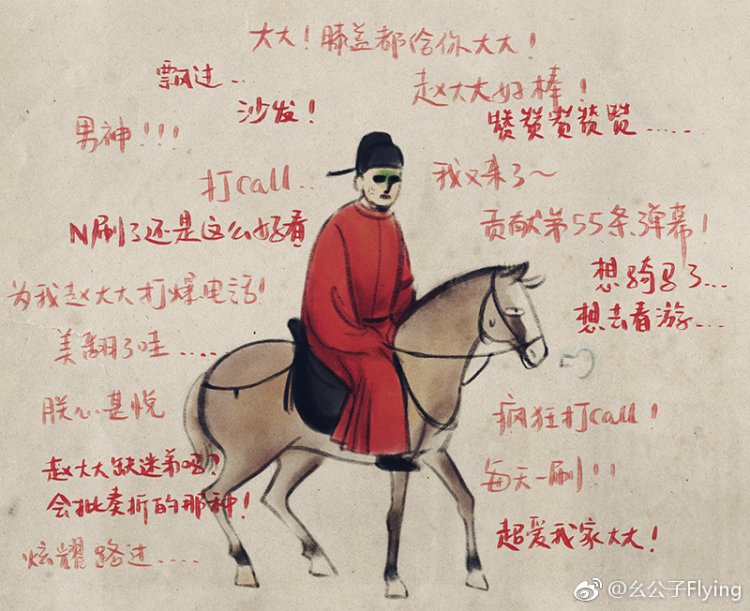 大大！膝盖都给你大大！
飘过...
赵大大好棒！
沙发！
赞赞赞赞赞.....
男神！！！
打call..
我又来了～
N刷了还是这么好看
贡献第55条弹幕！
想骑马了...
为我赵大大打爆电话！
想去看游...
美翻了哇.....
朕心甚悦
疯狂打call！
赵大大缺迷弟吗？
每天一刷！！
会批奏折的那种！
超爱我家大大！
炫耀路过....
@幺公子Flying